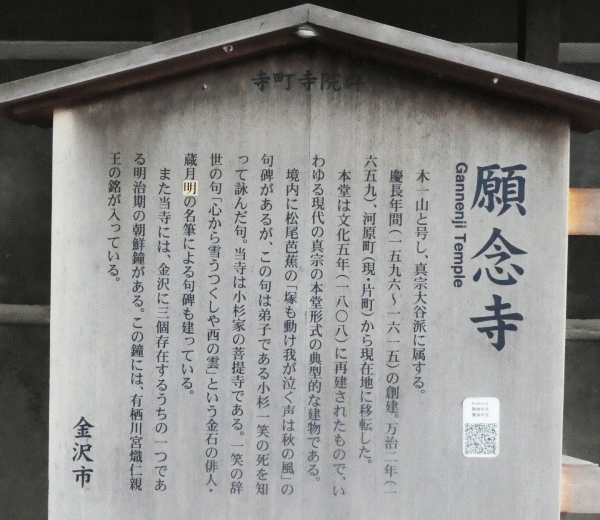 寺町寺院群
願念寺
Gannenji Temple
木一山と号し、真宗大谷派に属する。
慶長年間(一五九六～一六一五)の創建。万治二年(一
六五九)、河原町(現・片町)から現在地に移転した。
本堂は文化五年(一八〇八)に再建されたもので、い
わゆる現代の真宗の本堂形式の典型的な建物である。
境内に松尾芭蕉の「塚も動け我が泣く声は秋の風」の
句碑があるが、この句は弟子である小杉一笑の死を知
って詠んだ句。当寺は小杉家の菩提寺である。一笑の辞
世の句「心から雪うつくしや西の雲」という金石の俳人・
蔵月明の名筆による句碑も建っている。
また当寺には、金沢に三個存在するうちの一つであ
る明治期の朝鮮鐘がある。この鐘には、有栖川宮熾仁親
王の銘が入っている。
金沢市